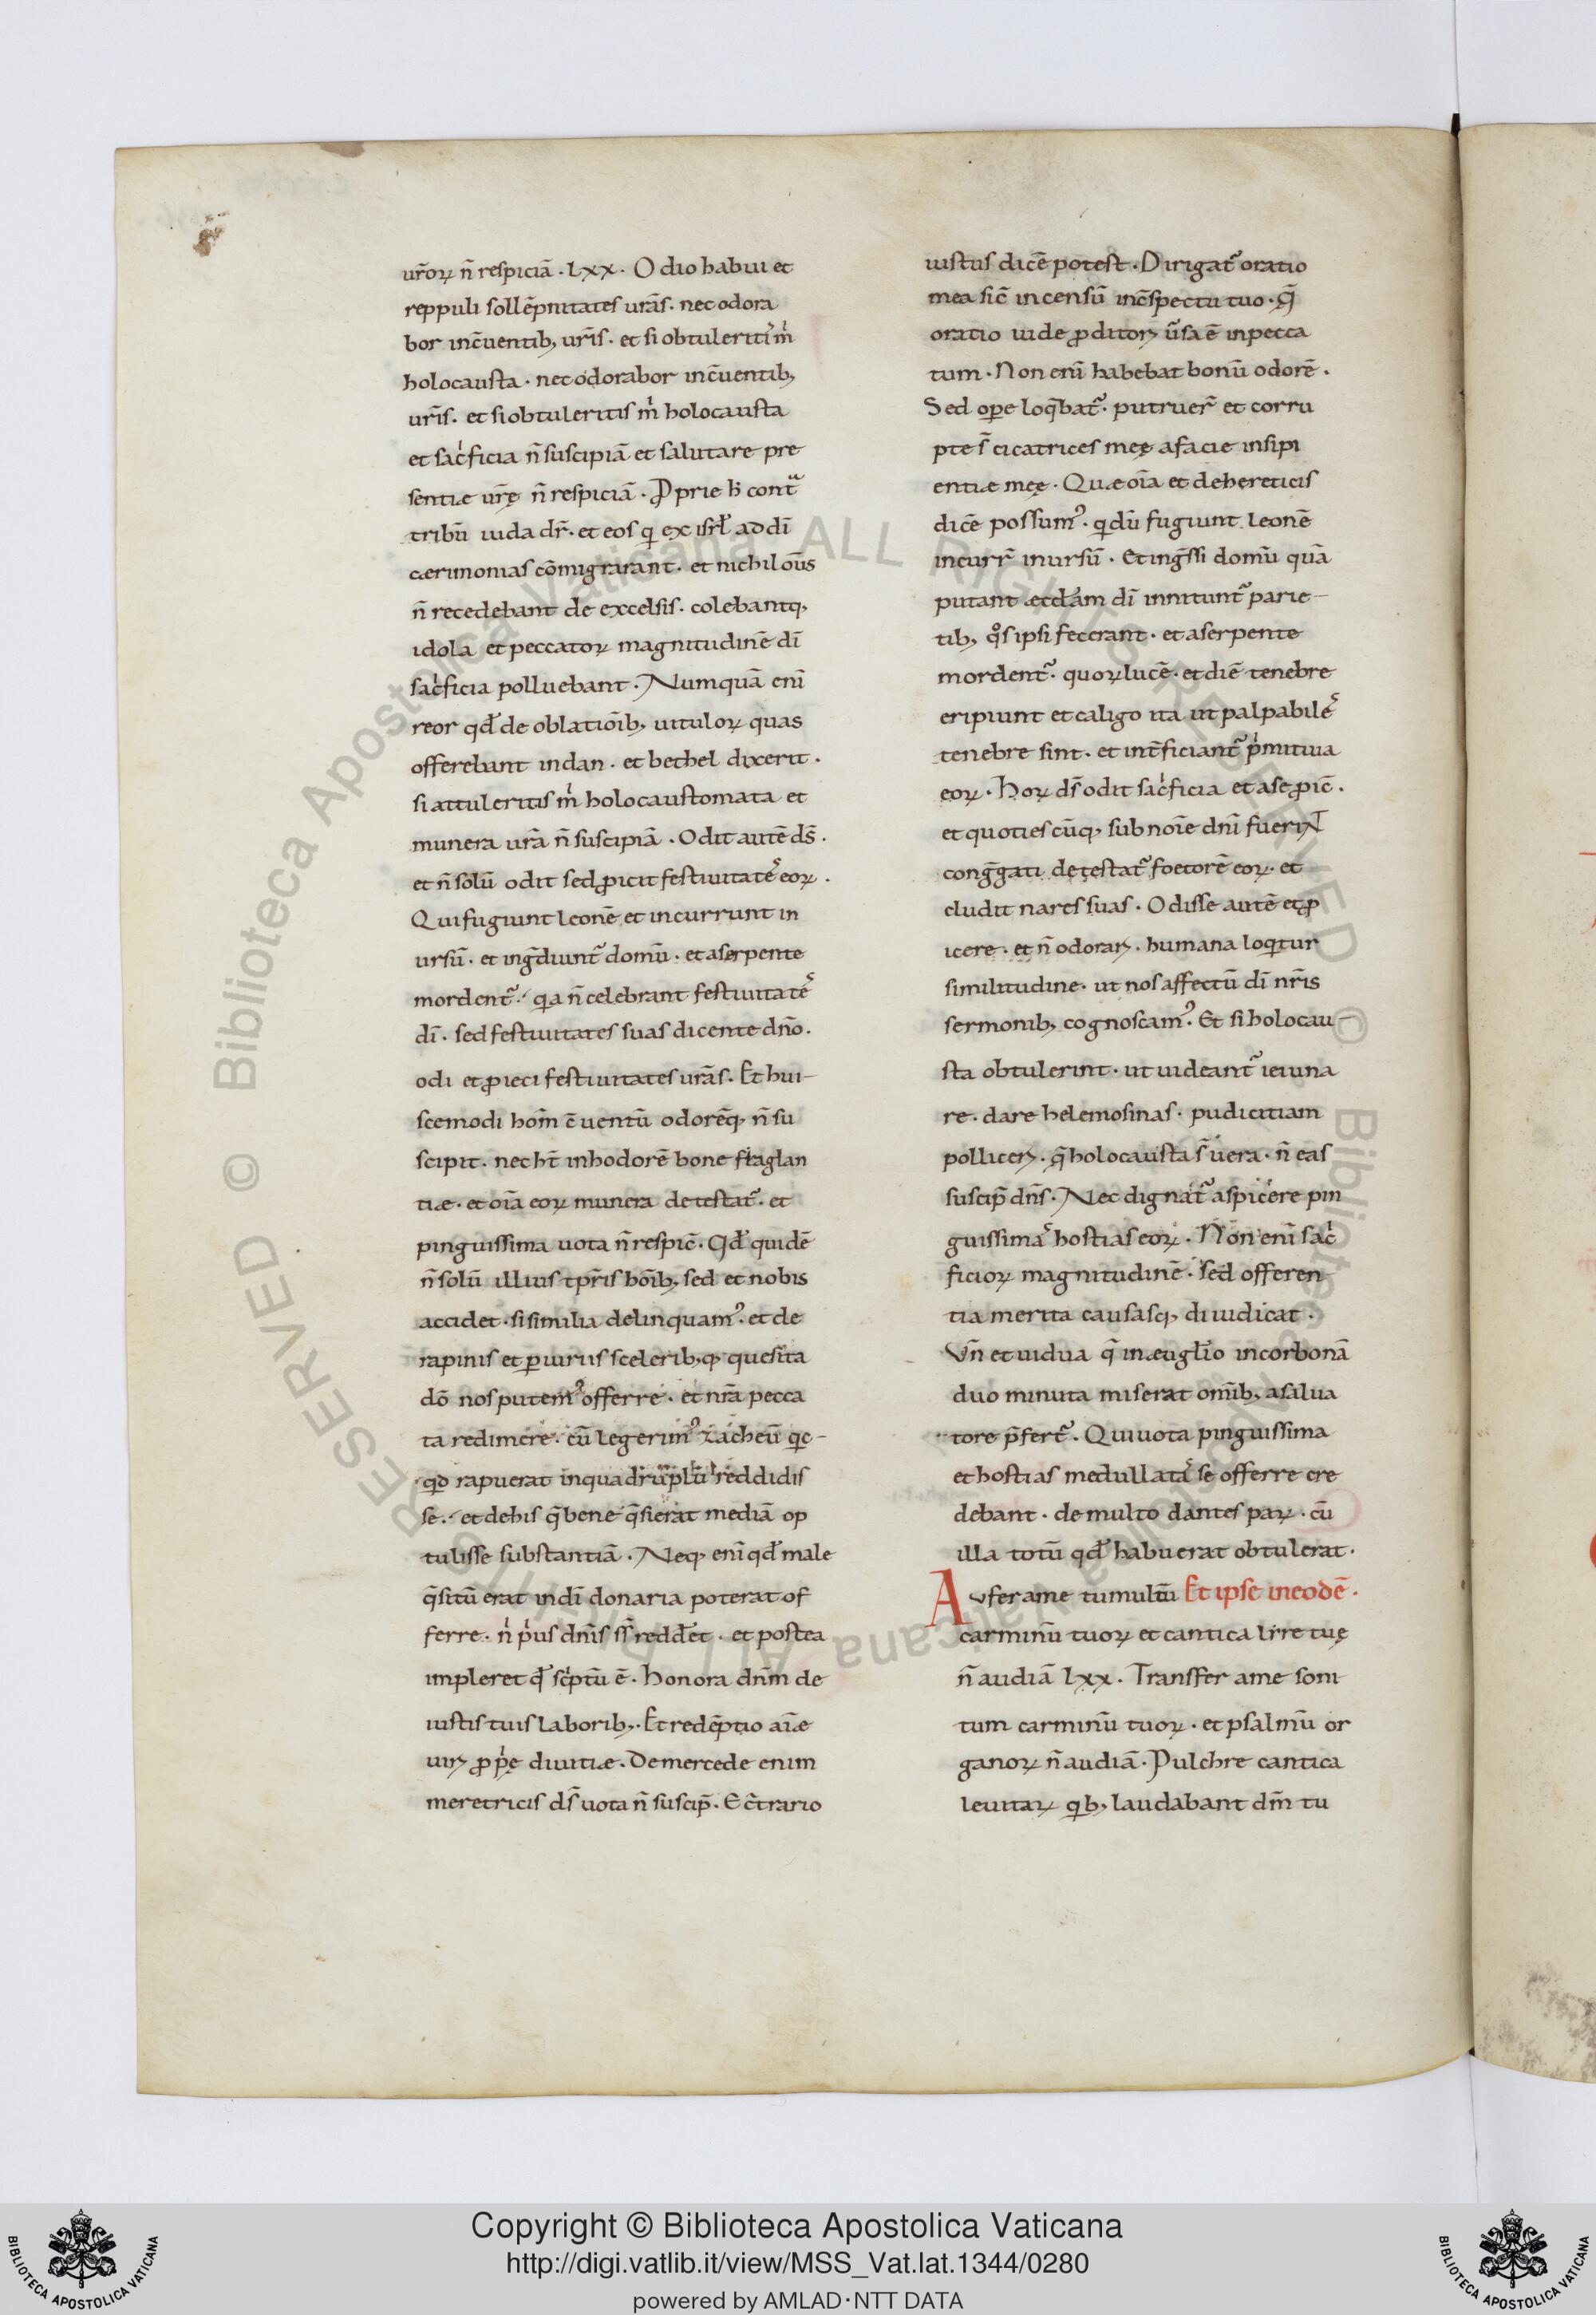 ur̃oꝝ ñ respiciã · lxx · Odio habui et
reppuli sollẽpnitates urãs · nec odora
bor inc̃uentib; ur̃is · et si obtuleriti᾽ m̓
holocausta · nec odorabor inc̃uentib;
ur̃is · et si obtuleritis m̓ holocausta
et sac̓ficia ñ suscipiã et salutare pre
sentiae ur̃ę ñ respiciã · Ꝓprie h̓ contᵃ
tribũ iuda dr̃ · et eos q ex isrł ad dĩ
caerimonias cõmigrarant · et nichil oũs
ñ recedebant de excelsis · colebantq;
idola et peccatoꝝ magnitudinẽ dĩ
sac̓ficia polluebant · Numquã enĩ
reor qđ de oblatiõib; uituloꝝ quas
offerebant indan · et bethel dixerit ·
si attuleritis m̓ holocaustomata et
munera urã ñ suscipiã · Odit autẽ ds̃ ·
et ñ solũ odit sed ꝓicit festiuitatẽ᾽ eoꝝ ·
Qui fugiunt leonẽ et incurrunt in
ursũ · et ing̃diunt᾽ domũ · et aserpente
mordent᾽ · qa ñ celebrant festiuitatẽ᾽
dĩ · sed festiuitates suas dicente dño ·
odi et ꝓieci festiuitates urãs · Et hui-
scemodi hom̃ c̃uentũ odorẽq; ñ su
scipit · nec ht̃ inhodorẽ bone fraglan
tiae · et oĩa eoꝝ munera detestat᾽ · et
pinguissima uota ñ respic̃ · Qđ quidẽ
ñ solũ illius tpr̃is hõib; sed et nobis
accidet · si similia delinquam᾽ · et de
rapinis et ꝑiuriis scelerib;q; quesita
dõ nos putem᾽ offerre · et nrã pecca
ta redimere · cũ legerim᾽ zacheũ qc-
qd rapuerat inquadruplũ reddidis
se · et dehis q̃ bene q̃sierat mediã op
tulisse substantiã · Neq; enĩ qđ male
q̃sitũ erat indĩ donaria poterat of
ferre · n̓ p̓us dnĩs ss̃ reddẽt · et postea
impleret qđ sc̓ptũ ẽ · Honora dnm̃ de
iustis tuis laborib; · Et redẽptio aĩae
uiri ꝓp̓ę diuitiae · Demercede enim
meretricis ds̃ uota ñ suscip̃ · E c̃trario
iustus dicẽ potest · Dirigat᾽ oratio
mea sic̃ incensũ inc̃spectu tuo · q̃
oratio iude ꝓditoris ũsa ẽ inpecca
tum · Non enĩ habebat bonũ odorẽ ·
Sed oꝑe loq̃bat᾽ · putruer̃ et corru
pte s̃ cicatrices męę afacie insipi
entiae męę · Quae oĩa et dehereticis
dicẽ possum᾽ · q dũ fugiunt leonẽ
incurr̃ inursũ · Et ing̃ssi domũ quã
putant aeccłam dĩ innitunt᾽ parie-
tib; q̊s ipsi fecerant · et aserpente
mordent᾽ · quoꝝ lucẽ · et diẽ tenebre
eripiunt et caligo ita ut palpabilẽ᾽
tenebre sint · et int̃ficiant᾽ p̓mitiua
eoꝝ · Hoꝝ ds̃ odit sac̓ficia et ase ꝓic̃ ·
et quotiescũq; sub noĩe dnĩ fuerint
cong̃gati detestat᾽ foetorẽ eoꝝ · et
cludit nares suas · Odisse autẽ et ꝓ
icere · et ñ odorari · humana loqtur
similitudine · ut nos affectũ dĩ nr̃is
sermonib; cognoscam᾽ · Et si holocau-
sta obtulerint · ut uideant᾽ ieiuna
re · dare helemosinas · pudicitiam
polliceri · q̃ holocausta s̃ uera · ñ eas
suscip̃ dñs · Nec dignat᾽ aspicere pin
guissima᾽ hostias eoꝝ · Non enĩ sac̓
ficioꝝ magnitudinẽ · sed offeren
tia merita causasq; diiudicat ·
Uñ et uidua q̃ inaeuglĩo incorbonã
duo minuta miserat omĩb; asalua
tore p̃fert᾽ · Qui uota pinguissima
et hostias medullata᾽ se offerre cre
debant · de multo dantes paꝝ · cũ
illa totũ qđ habuerat obtulerat ·
Aufer ame tumultũ Et ipse ineodẽ ·
carminũ tuoꝝ et cantica lirre tuę
ñ audiã lxx · Transfer ame soni
tum carminũ tuoꝝ · et psalmũ or
ganoꝝ ñ audiã · Pulchre cantica
leuitaꝝ qb; laudabant dm̃ tu
© Biblioteca Apostolica Vaticana ALL RIGHTS RESERVED
Copyright © Biblioteca Apostolica Vaticana
http://digi.vatlib.it/view/MSS_Vat.lat.1344/0280
powered by AMLAD·NTT DATA
BIBLIOTECA APOSTOLICA VATICANA
BIBLIOTECA APOSTOLICA VATICANA